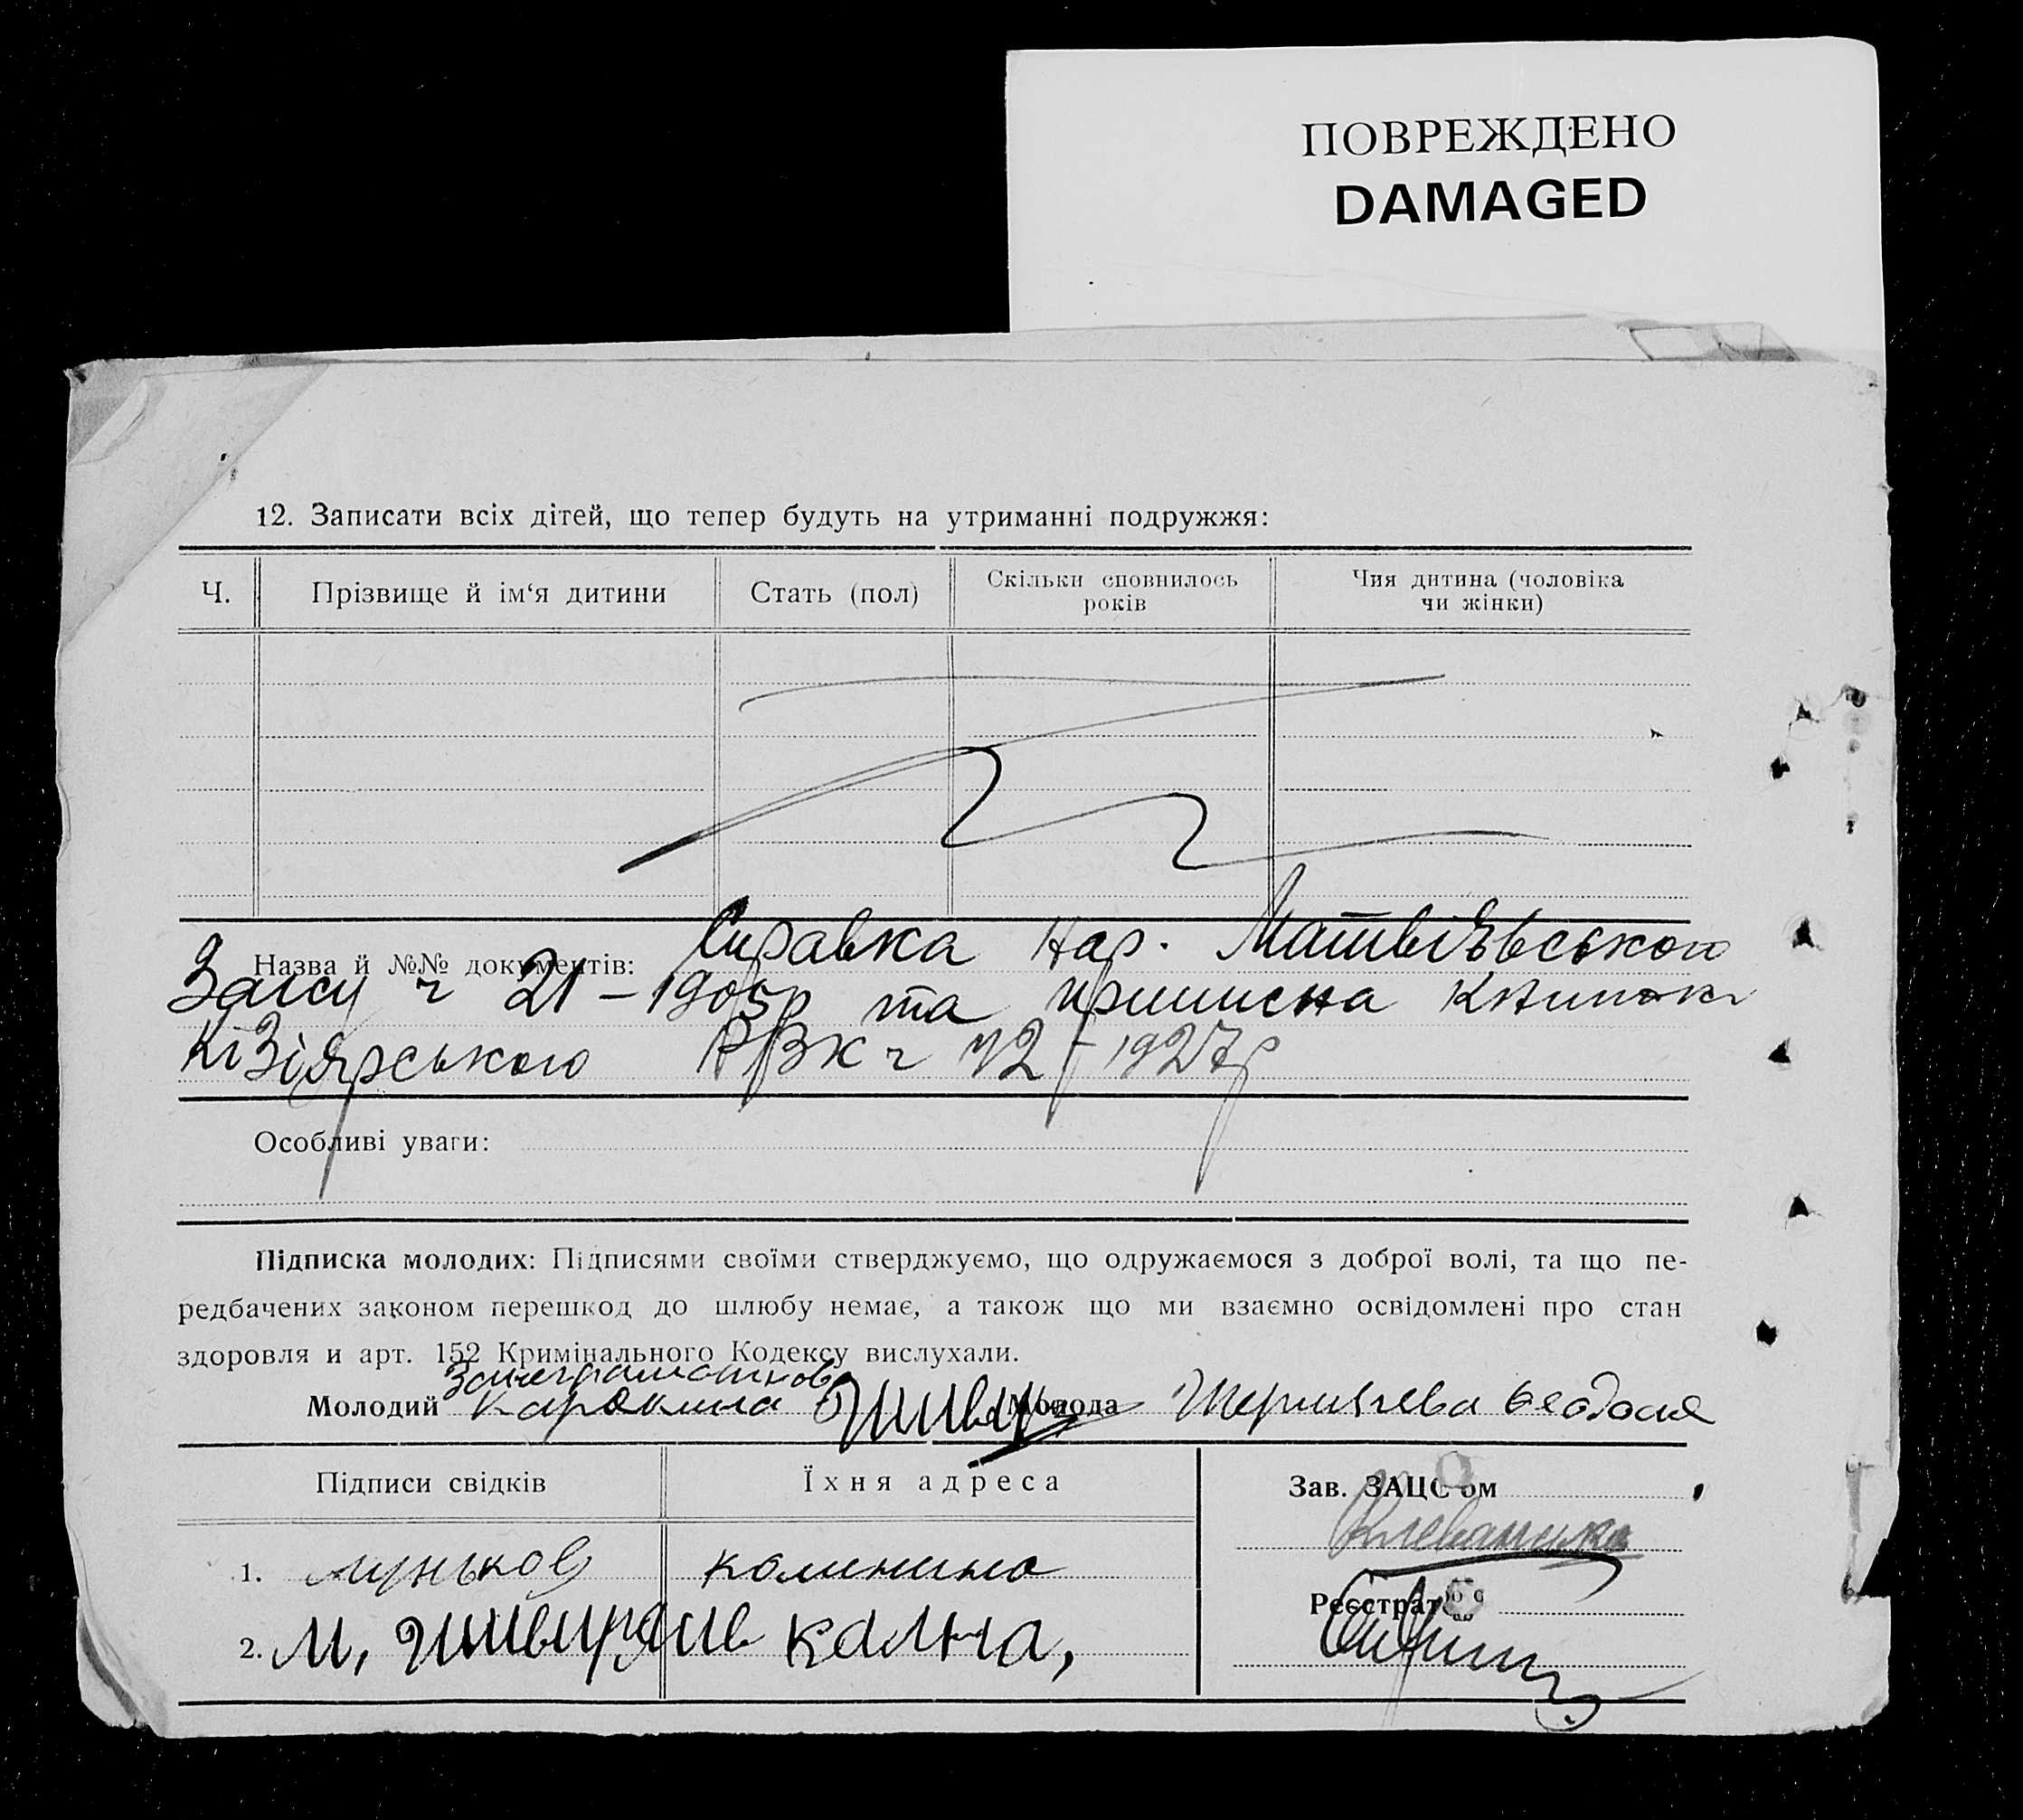 ПОВРЕЖДЕНО
DAMAGED
12. Записати всіх дітей, що тепер будуть на утриманні подружжя:
Ч. Прізвище й ім‘я дитини Стать (пол) Скільки сповнилось років Чия дитина (чоловіка чи жінки)
Справка нар. Матвіївського
Назва й №№ документів:
Загсу ч 21 – 1905р та приписна
Кізіярського РВК ч 12 – 1927р
Особливі уваги:
Підписка молодих: Підписями своїми стверджуємо, що одружаємося з доброї волі, та що пе-
редбачених законом перешкод до шлюбу немає, а також що ми взаємно освідомлені про стан
здоровля и арт. 152 Кримінального Кодексу вислухали.
Молодий Молода
Підписи свідків Їхня адреса Зав. ЗАЦС‘ом
1. Луньков калинина
Реєстратор
2. М,